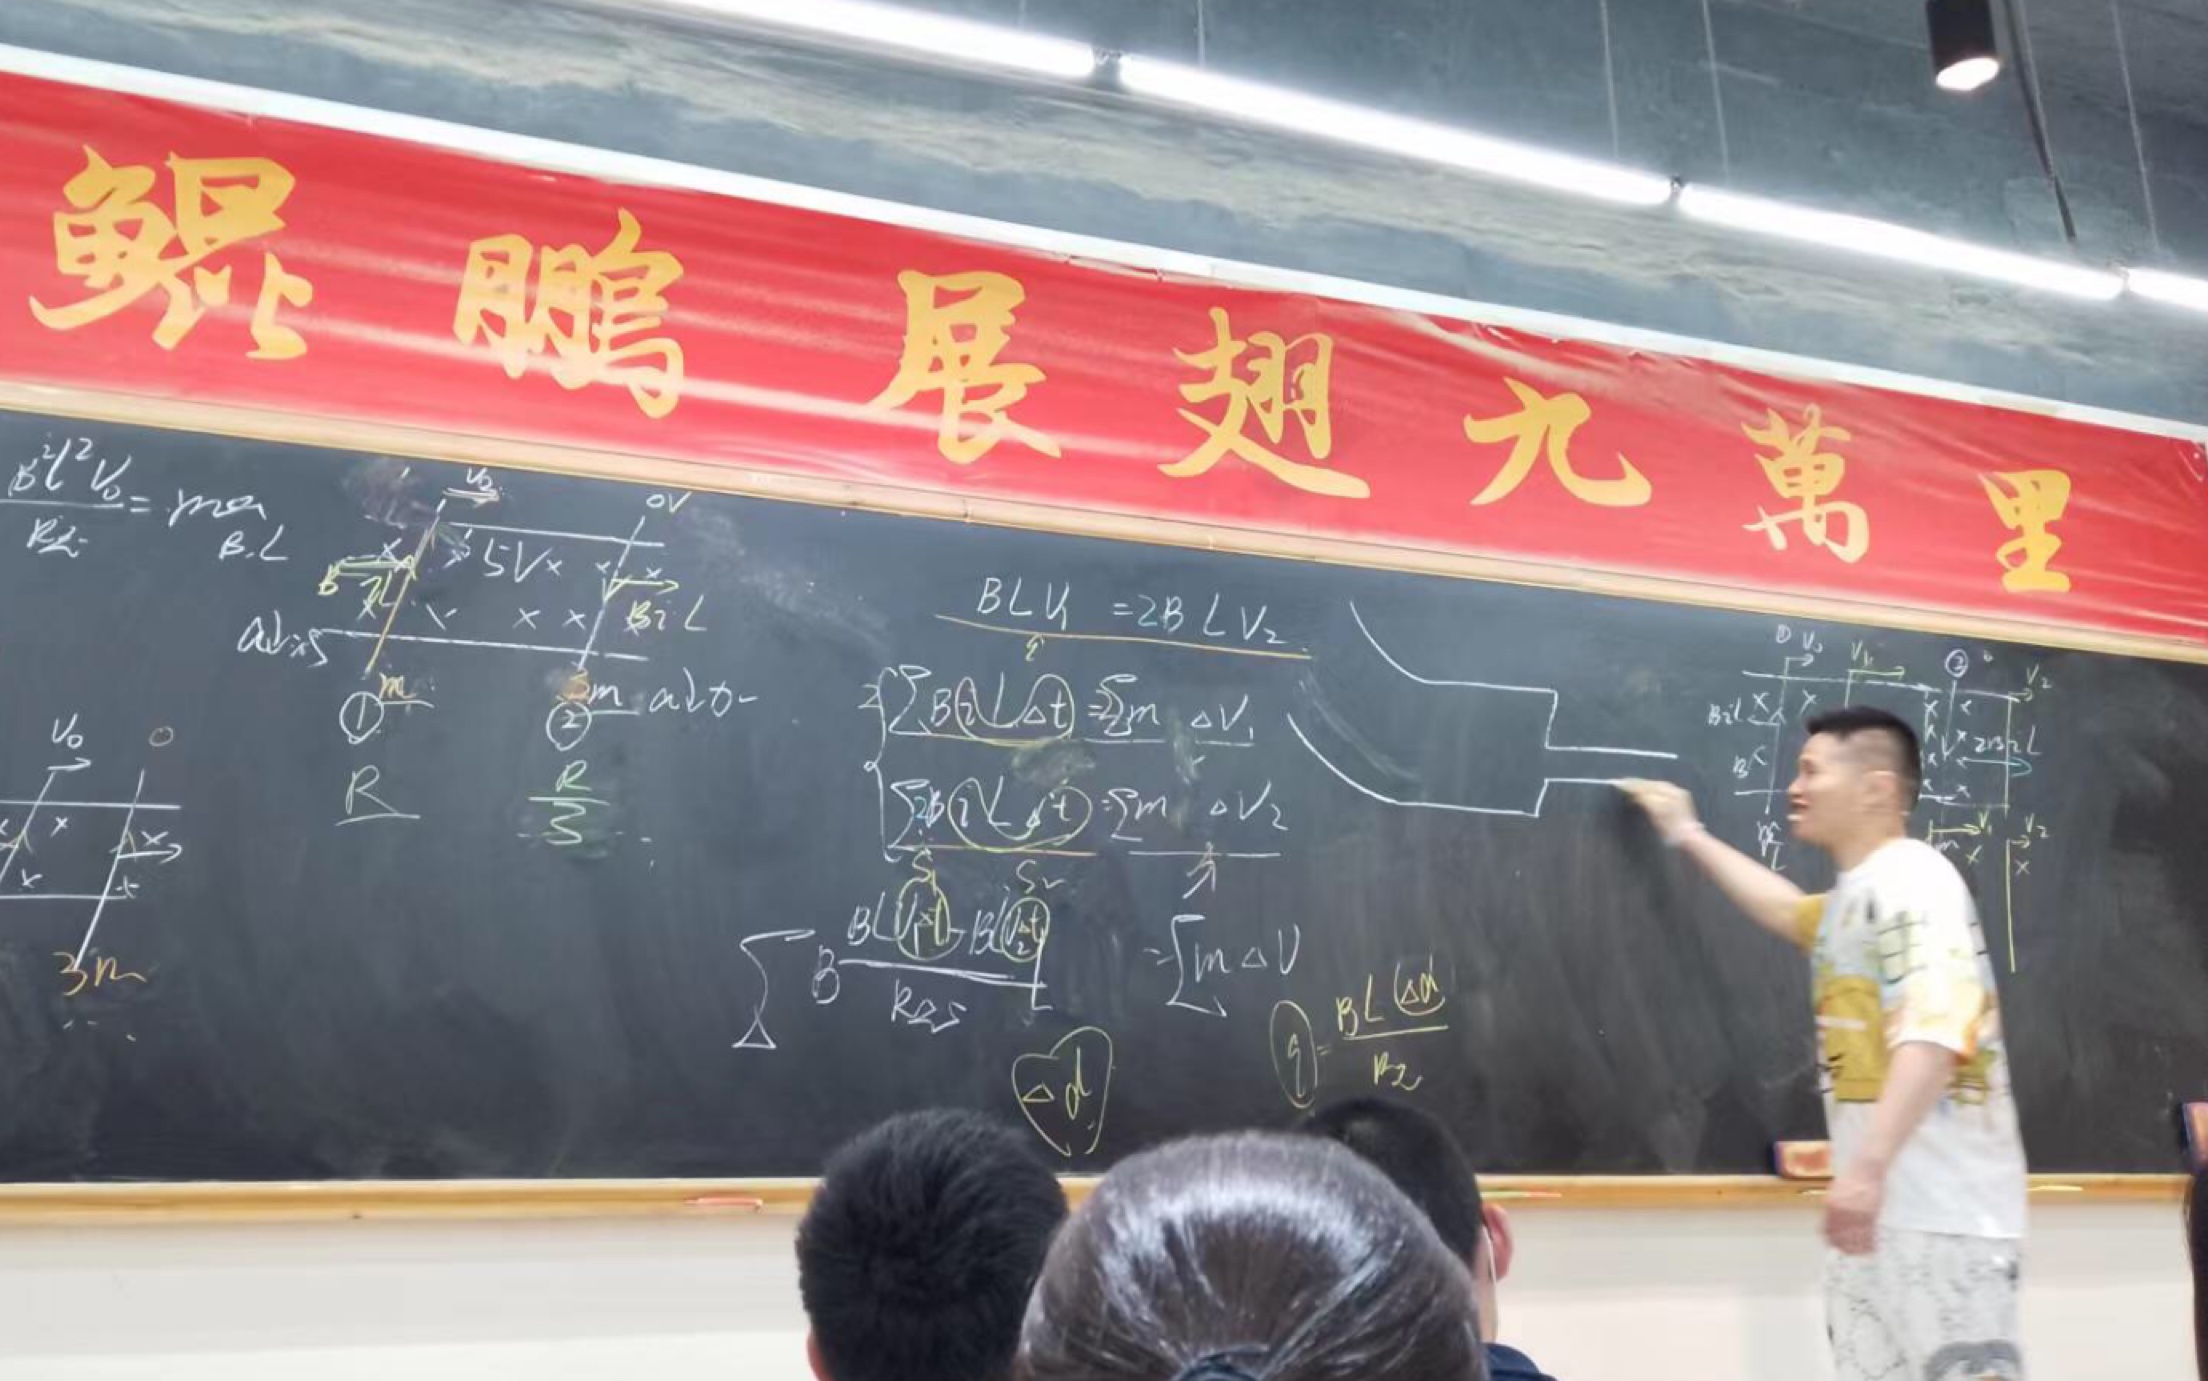 鲲鹏展翅九萬里
B²l²V₀/R总 = ma
B₁L
V₀
0V
5V
BiL
①
m
②
3m
R
R/3
V₀
0
3m
BLV₁ = 2BLV₂
q
∑BiLΔt = ∑mΔV₁
∑2BiLΔt = ∑mΔV₂
S₁
S₂
∑B (BLV₁Δt - BLV₂Δt)/R总 L = ∑mΔV
Δd
q = BLΔd/R总
①
V₀
V₁
②
0
V₂
BiL
2BiL
B
V₁
V₂